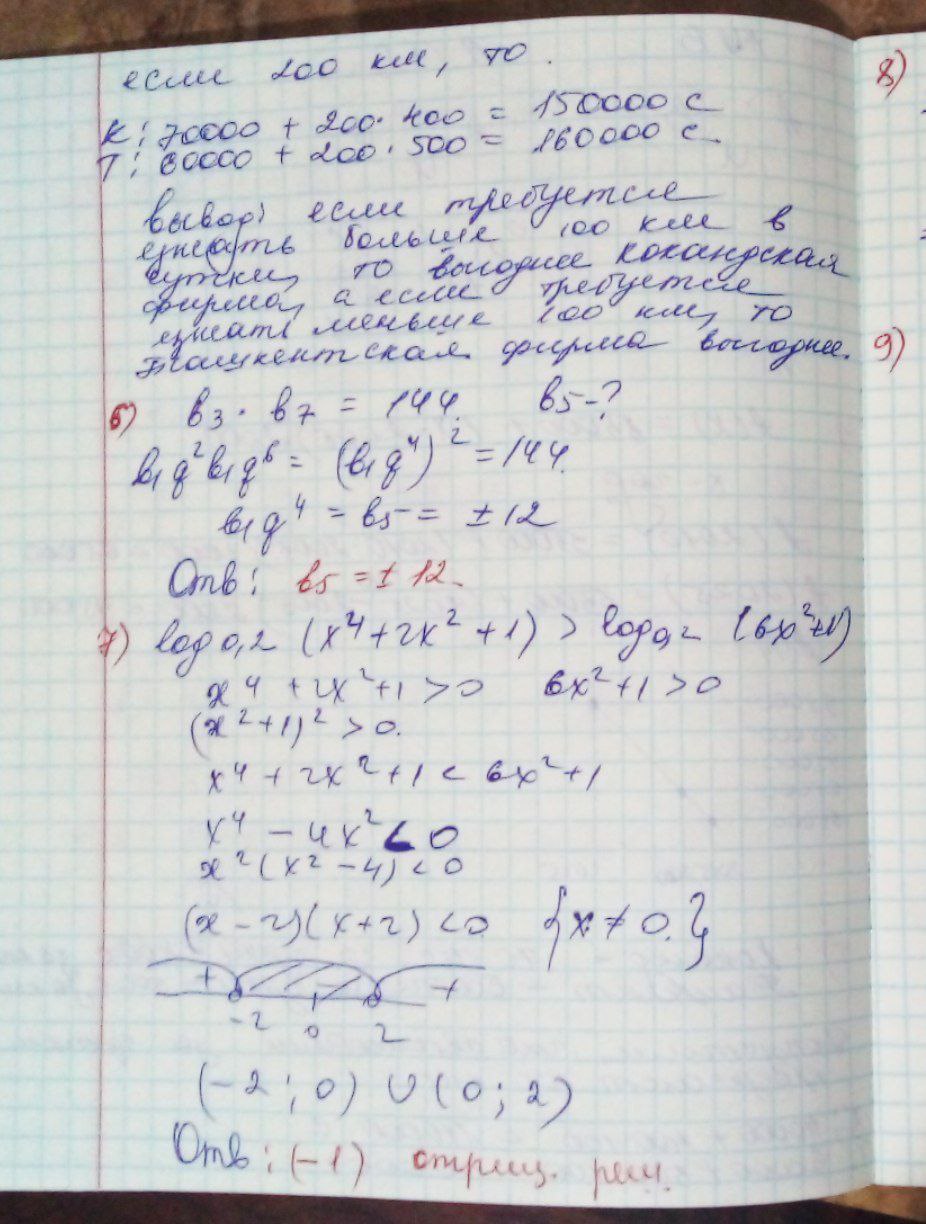 если 200 км, то.
К: 70000 + 200·400 = 150000 с
Т: 60000 + 200·500 = 160000 с.
вывод: если требуется
езжать больше 100 км в
сутки, то выгоднее кокандская
фирма, а если требуется
езжать меньше 100 км, то
Ташкентская фирма выгоднее.
6) b3 · b7 = 144. b5 -?
b1q² b1q⁶ = (b1q⁴)² = 144.
b1q⁴ = b5 = ±12
Отв: b5 = ±12.
7) log0,2 (x⁴+2x²+1) > log0,2 (6x²+1)
x⁴ + 2x²+1 > 0 6x²+1 > 0
(x²+1)² > 0.
x⁴ + 2x²+1 < 6x²+1
x⁴ - 4x² < 0
x²(x²-4) < 0
(x-2)(x+2) < 0 {x ≠ 0.}
+ +
-2 0 2
(-2; 0) ∪ (0; 2)
Отв: (-1) отриц. реш.
8)
9)